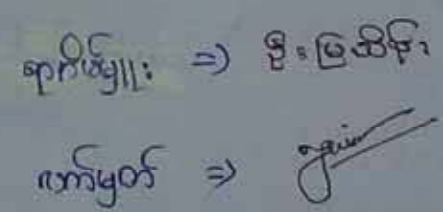 ရာဂိမ်မှူး => ဦးမြသိန်း
လက်မှတ် =>